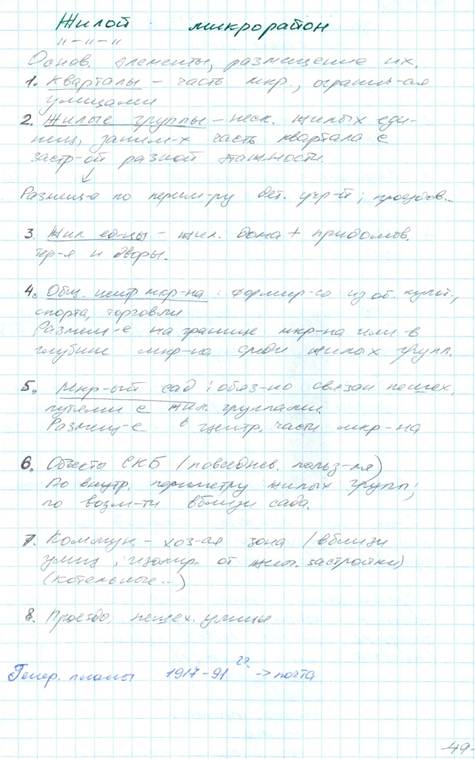 Жилой микрорайон
-"-"-"
Основ. элементы, размещение их.
1. Кварталы - часть мкр., огранич-ая
улицами
2. Жилые группы - неск. жилых еди-
ниц, заним-х часть квартала с
застр-ой разной этажности
Размещ-е по перим-ру дет. учр-й; проездов...
3. Жил. един-цы - жил. дома + придомов.
тер-я и дворы.
4. Общ. центр мкр-на: формир-ся из об. культ.,
спорта, торговли
Размещ-е на границе мкр-на или в
глубине мкр-на среди жилых групп.
5. Мкр-ый сад: обяз-но связан пешех.
путями с жил. группами.
Размещ-е в центр. части мкр-на
6. Объекты СКБ (повседнев. польз-ия)
По внутр. периметру жилых групп;
по возм-ти вблизи сада.
7. Коммун. - хоз-ая зона (вблизи
улиц, изолир. от жил. застройки)
(котельные...)
8. Проезды, пешех. улицы
Генер. планы 1917-91 гг. -> почта
-49-